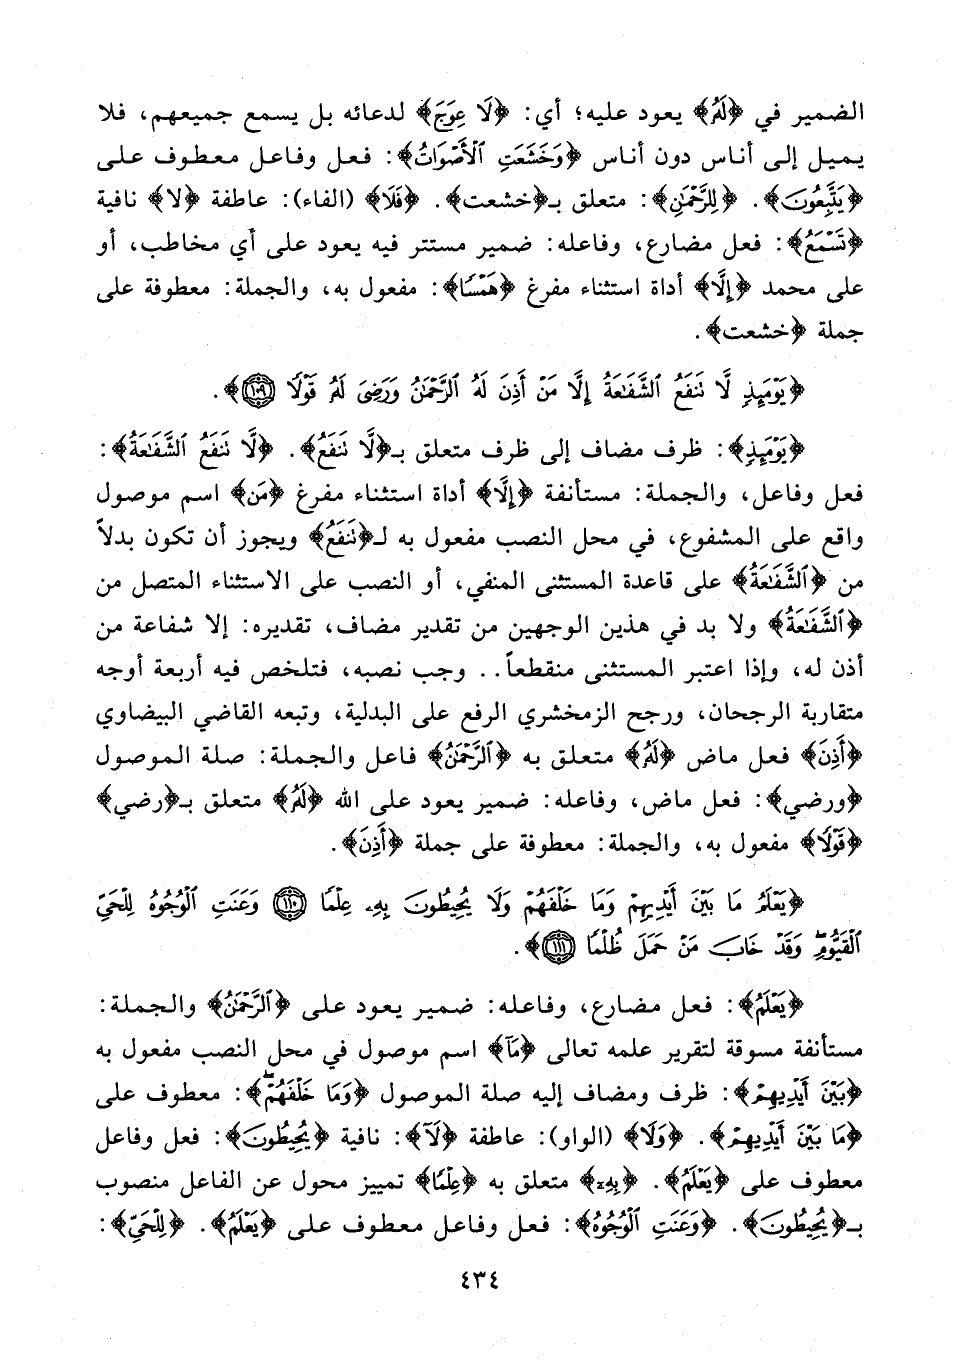 الضمير في ﴿لَهُ﴾ يعود عليه؛ أي: ﴿لَا عِوَجَ﴾ لدعائه بل يسمع جميعهم، فلا
يميل إلى أناس دون أناس ﴿وَخَشَعَتِ ٱلْأَصْوَاتُ﴾: فعل وفاعل معطوف على
﴿يَتَّبِعُونَ﴾. ﴿لِلرَّحْمَٰنِ﴾: متعلق بـ﴿خشعت﴾. ﴿فَلَا﴾ (الفاء): عاطفة ﴿لا﴾ نافية
﴿تَسْمَعُ﴾: فعل مضارع، وفاعله: ضمير مستتر فيه يعود على أي مخاطب، أو
على محمد ﴿إِلَّا﴾ أداة استثناء مفرغ ﴿هَمْسًا﴾: مفعول به، والجملة: معطوفة على
جملة ﴿خشعت﴾.
﴿يَوْمَئِذٍ لَّا تَنفَعُ ٱلشَّفَٰعَةُ إِلَّا مَنْ أَذِنَ لَهُ ٱلرَّحْمَٰنُ وَرَضِىَ لَهُ قَوْلًا ۝١٠٩﴾.
﴿يَوْمَئِذٍ﴾: ظرف مضاف إلى ظرف متعلق بـ﴿لَّا تَنفَعُ﴾. ﴿لَّا تَنفَعُ ٱلشَّفَٰعَةُ﴾:
فعل وفاعل، والجملة: مستأنفة ﴿إِلَّا﴾ أداة استثناء مفرغ ﴿مَن﴾ اسم موصول
واقع على المشفوع، في محل النصب مفعول به لـ﴿تَنفَعُ﴾ ويجوز أن تكون بدلاً
من ﴿ٱلشَّفَٰعَةُ﴾ على قاعدة المستثنى المنفي، أو النصب على الاستثناء المتصل من
﴿ٱلشَّفَٰعَةُ﴾ ولا بد في هذين الوجهين من تقدير مضاف، تقديره: إلا شفاعة من
أذن له، وإذا اعتبر المستثنى منقطعاً.. وجب نصبه، فتلخص فيه أربعة أوجه
متقاربة الرجحان، ورجح الزمخشري الرفع على البدلية، وتبعه القاضي البيضاوي
﴿أَذِنَ﴾ فعل ماض ﴿لَهُ﴾ متعلق به ﴿ٱلرَّحْمَٰنُ﴾ فاعل والجملة: صلة الموصول
﴿ورضي﴾: فعل ماض، وفاعله: ضمير يعود على الله ﴿لَهُ﴾ متعلق بـ﴿رضي﴾
﴿قَوْلًا﴾ مفعول به، والجملة: معطوفة على جملة ﴿أَذِنَ﴾.
﴿يَعْلَمُ مَا بَيْنَ أَيْدِيهِمْ وَمَا خَلْفَهُمْ وَلَا يُحِيطُونَ بِهِۦ عِلْمًا ۝١١٠ وَعَنَتِ ٱلْوُجُوهُ لِلْحَىِّ
ٱلْقَيُّومِۖ وَقَدْ خَابَ مَنْ حَمَلَ ظُلْمًا ۝١١١﴾.
﴿يَعْلَمُ﴾: فعل مضارع، وفاعله: ضمير يعود على ﴿ٱلرَّحْمَٰنُ﴾ والجملة:
مستأنفة مسوقة لتقرير علمه تعالى ﴿مَآ﴾ اسم موصول في محل النصب مفعول به
﴿بَيْنَ أَيْدِيهِمْ﴾: ظرف ومضاف إليه صلة الموصول ﴿وَمَا خَلْفَهُمْۖ﴾: معطوف على
﴿مَا بَيْنَ أَيْدِيهِمْ﴾. ﴿وَلَا﴾ (الواو): عاطفة ﴿لَآ﴾: نافية ﴿يُحِيطُونَ﴾: فعل وفاعل
معطوف على ﴿يَعْلَمُ﴾. ﴿بِهِۦ﴾ متعلق به ﴿عِلْمًا﴾ تمييز محول عن الفاعل منصوب
بـ﴿يُحِيطُونَ﴾. ﴿وَعَنَتِ ٱلْوُجُوهُ﴾: فعل وفاعل معطوف على ﴿يَعْلَمُ﴾. ﴿لِلْحَيِّ﴾:
٤٣٤